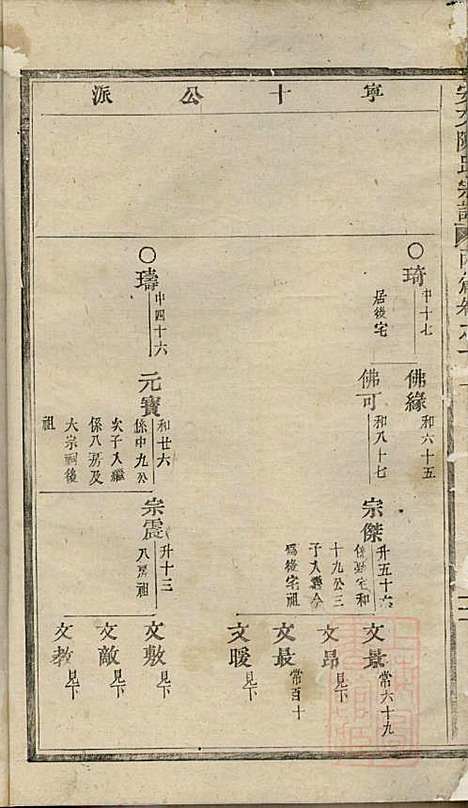 寧十公派
琦
中十七
居後宅
佛緣
和六十五
佛可
和八十七
宗傑
升五十六
係路宅和
十九公三
子入繼今
爲後宅祖
文景
常六十九
文昂
見下
文最
常百十
文暖
見下
璹
中四十六
元寶
和廿六
係中九公
次子入繼
係八房及
大宗祠後
祖
宗震
升十三
八房祖
文敷
見下
文敵
見下
文教
見下